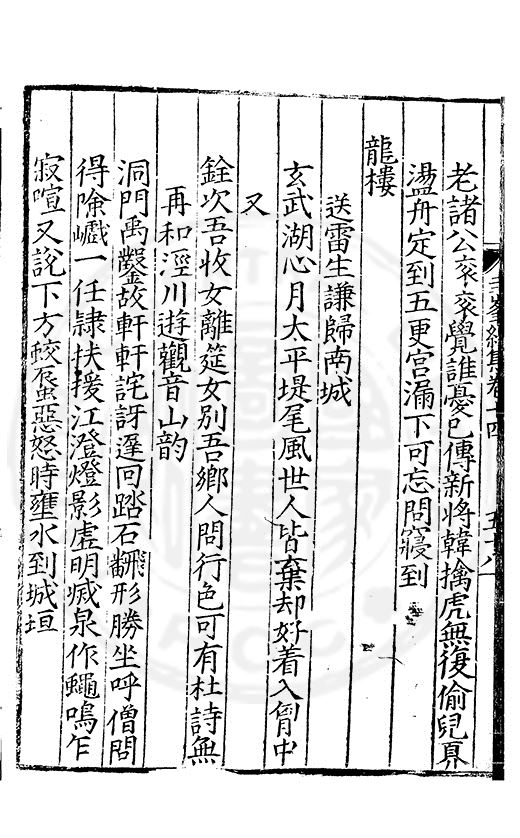 老諸公衮衮覺誰憂已傳新將韓擒虎無復偷兒㚖
盪舟定到五更宮漏下可忘問寢到
龍樓
送雷生謙歸南城
玄武湖心月太平堤尾風世人皆棄却好着入胷中
又
銓次吾收女離筵女別吾鄉人問行色可有杜詩無
再和涇川遊觀音山韵
洞門禹鑿故軒軒詫訝遲回踏石飜形勝坐呼僧問
得險巇一任隷扶援江澄燈影虛明烕泉作蠅鳴乍
寂喧又說下方蛟蜃惡怒時壅水到城垣